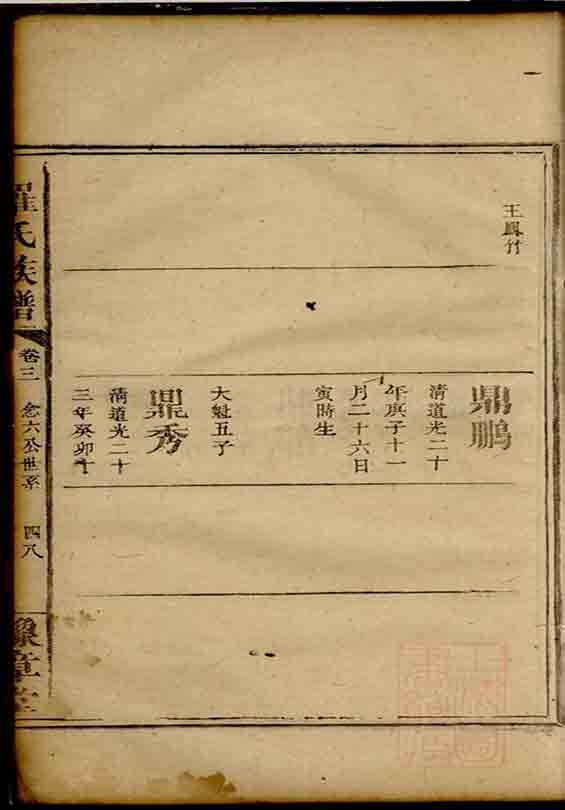 王鳳竹
鼎鵬
清道光二十
年庚子十一
月二十六日
寅時生
大魁五子
鼎秀
清道光二十
三年癸卯十
羅氏族譜
卷三
念六公世系
四八
豫章堂